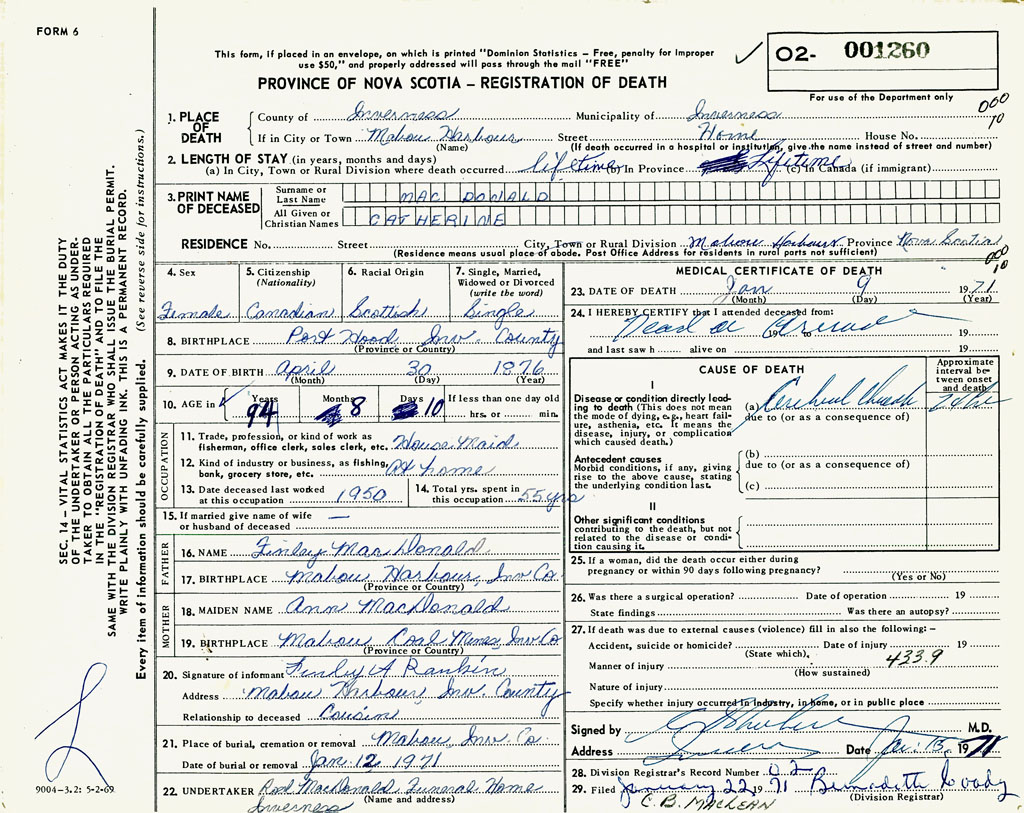 FORM 6
This form, if placed in an envelope, on which is printed "Dominion Statistics – Free, penalty for improper
use $50," and properly addressed will pass through the mail "FREE"
PROVINCE OF NOVA SCOTIA – REGISTRATION OF DEATH
O2- 001260
For use of the Department only
000
10
1. PLACE OF DEATH
County of Inverness Municipality of Inverness
If in City or Town Mabou Harbour Street Home House No.
(Name) (If death occurred in a hospital or institution, give the name instead of street and number)
2. LENGTH OF STAY (in years, months and days)
(a) In City, Town or Rural Division where death occurred lifetime (b) In Province Lifetime (c) In Canada (if immigrant)
3. PRINT NAME OF DECEASED
Surname or Last Name MAC DONALD
All Given or Christian Names CATHERINE
RESIDENCE No. Street City, Town or Rural Division Mabou Harbour Province Nova Scotia
(Residence means usual place of abode. Post Office Address for residents in rural parts not sufficient)
000
10
4. Sex
Female
5. Citizenship (Nationality)
Canadian
6. Racial Origin
Scottish
7. Single, Married, Widowed or Divorced (write the word)
Single
8. BIRTHPLACE Port Hood Inv. County
(Province or Country)
9. DATE OF BIRTH April 30 1876
(Month) (Day) (Year)
10. AGE in Years Months Days If less than one day old
94 8 10 hrs. or min.
OCCUPATION
11. Trade, profession, or kind of work as
fisherman, office clerk, sales clerk, etc. House Maid
12. Kind of industry or business, as fishing,
bank, grocery store, etc. At home
13. Date deceased last worked
at this occupation 1950
14. Total yrs. spent in
this occupation 55 yrs
15. If married give name of wife
or husband of deceased —
FATHER
16. NAME Finlay MacDonald
17. BIRTHPLACE Mabou Harbour, Inv Co
(Province or Country)
MOTHER
18. MAIDEN NAME Ann MacDonald
19. BIRTHPLACE Mabou Coal Mines, Inv Co
(Province or Country)
20. Signature of informant Finley A Rankin
Address Mabou Harbour Inv. County
Relationship to deceased Cousin
21. Place of burial, cremation or removal Mabou, Inv. Co.
Date of burial or removal Jan. 12, 1971
22. UNDERTAKER Rod MacDonald Funeral Home
(Name and address)
Inverness
MEDICAL CERTIFICATE OF DEATH
23. DATE OF DEATH Jan 9 1971
(Month) (Day) (Year)
24. I HEREBY CERTIFY that I attended deceased from:
Dead on 19 to 19
and last saw h alive on 19
CAUSE OF DEATH
Approximate interval between onset and death
I
Disease or condition directly leading to death (This does not mean the mode of dying, e.g., heart failure, asthenia, etc. It means the disease, injury, or complication which caused death.)
(a) Cerebral
due to (or as a consequence of)
Antecedent causes
Morbid conditions, if any, giving rise to the above cause, stating the underlying condition last.
(b)
due to (or as a consequence of)
(c)
II
Other significant conditions
contributing to the death, but not related to the disease or condition causing it.
25. If a woman, did the death occur either during
pregnancy or within 90 days following pregnancy?
(Yes or No)
26. Was there a surgical operation? Date of operation 19
State findings Was there an autopsy?
27. If death was due to external causes (violence) fill in also the following: –
Accident, suicide or homicide? Date of injury 19
(State which)
433.9
Manner of injury
(How sustained)
Nature of injury
Specify whether injury occurred in industry, in home, or in public place
Signed by M.D.
Address Date Jan. 13, 1971
28. Division Registrar's Record Number 02
29. Filed January 22 1971 Benedette Coady
(Division Registrar)
C. B. MACLEAN
SEC. 14 – VITAL STATISTICS ACT MAKES IT THE DUTY
OF THE UNDERTAKER OR PERSON ACTING AS UNDER-
TAKER TO OBTAIN ALL THE PARTICULARS REQUIRED
IN THE "REGISTRATION OF DEATH" AND TO FILE THE
SAME WITH THE DIVISION REGISTRAR WHO SHALL ISSUE THE BURIAL PERMIT.
WRITE PLAINLY WITH UNFADING INK. THIS IS A PERMANENT RECORD.
Every item of information should be carefully supplied. (See reverse side for instructions.)
9004-3.2: 5-2-69